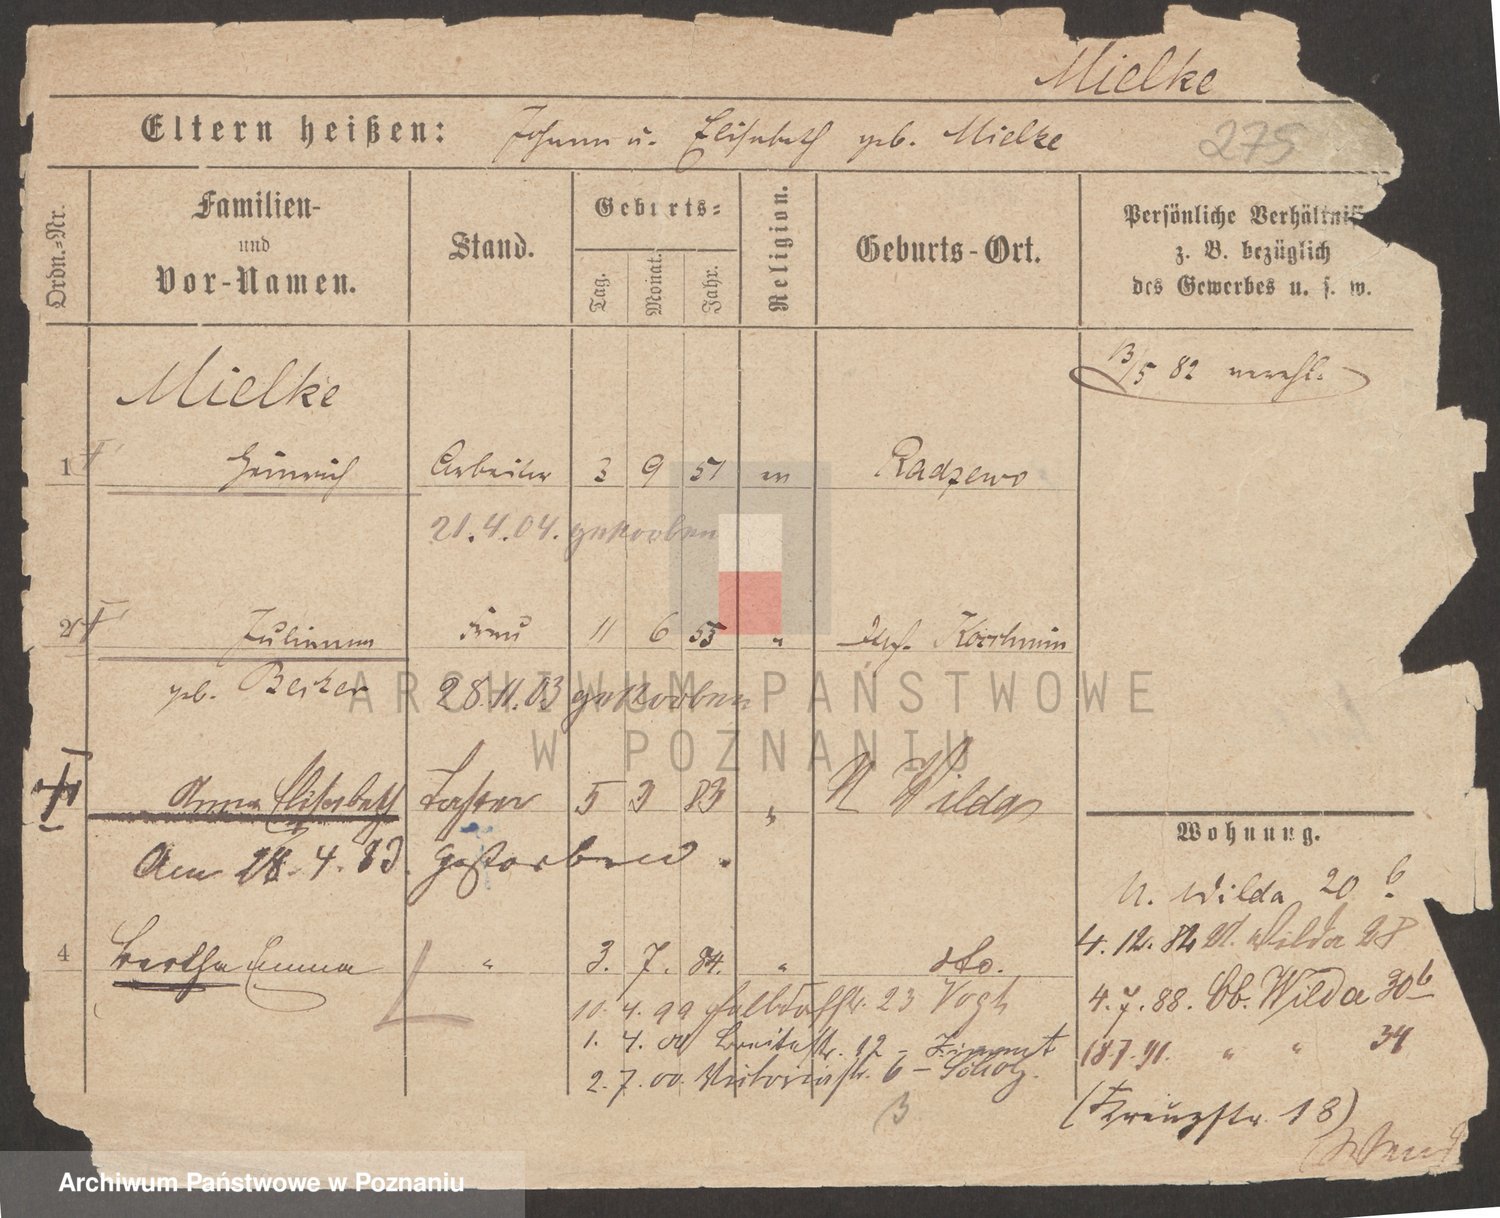 Mielke
Eltern heißen: Johann u. Elisabeth geb. Mielke
275
Ordn.=Nr.
Familien- und Vor-Namen.
Stand.
Geburts=
Tag. Monat. Jahr.
Religion.
Geburts-Ort.
Persönliche Verhältniß
z. B. bezüglich
des Gewerbes u. s. w.
Mielke
13/5 82 verehl.
1 Heinrich Arbeiter 3 9 51 ev Radzewo
21.4.04. gestorben
2 Julianna Frau 11 6 53 "
geb. Becker 28.11.03 gestorben
Anna Elisabeth Tochter 5 3 83 " U Wilda
Am 28.4.83. gestorben.
4 Bertha Emma " 3. 7. 84. " dto.
10. 4. 99 23 Vogt
1. 4. 00 Breitestr. 12 -
2. 7. 00. Victoriastr. 6 - Scholz.
B
Wohnung.
U. Wilda 20 b.
4. 12. 82 U. Wilda 28
4. 7. 88. Ob. Wilda 30b
18.7.91. " " 34
(Kreuzstr. 18)
ARCHIWUM PAŃSTWOWE
W POZNANIU
Archiwum Państwowe w Poznaniu